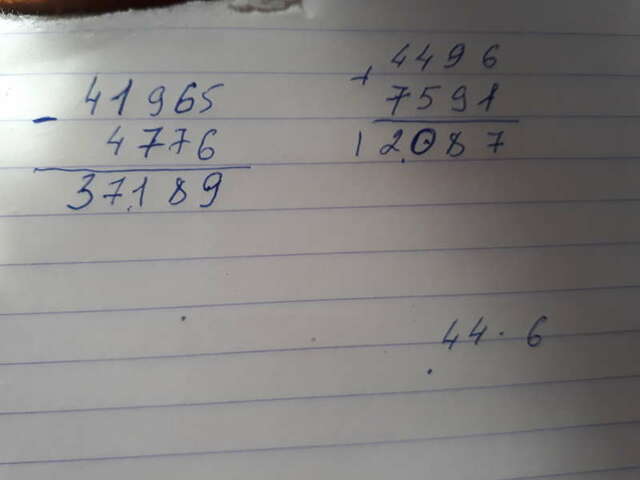 41965
- 4776
37189
4496
+ 7591
12087
44 · 6